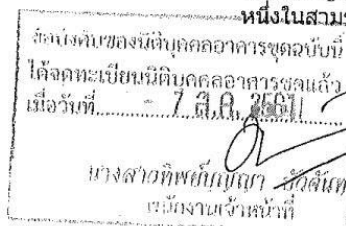 หนึ่งในสาม
ข้อบังคับของนิติบุคคลอาคารชุดฉบับนี้
ได้จดทะเบียนนิติบุคคลอาคารชุดแล้ว
เมื่อวันที่ - 7 ส.ค. 2561
นางสาวทิพย์กัญญา
พนักงานเจ้าหน้าที่